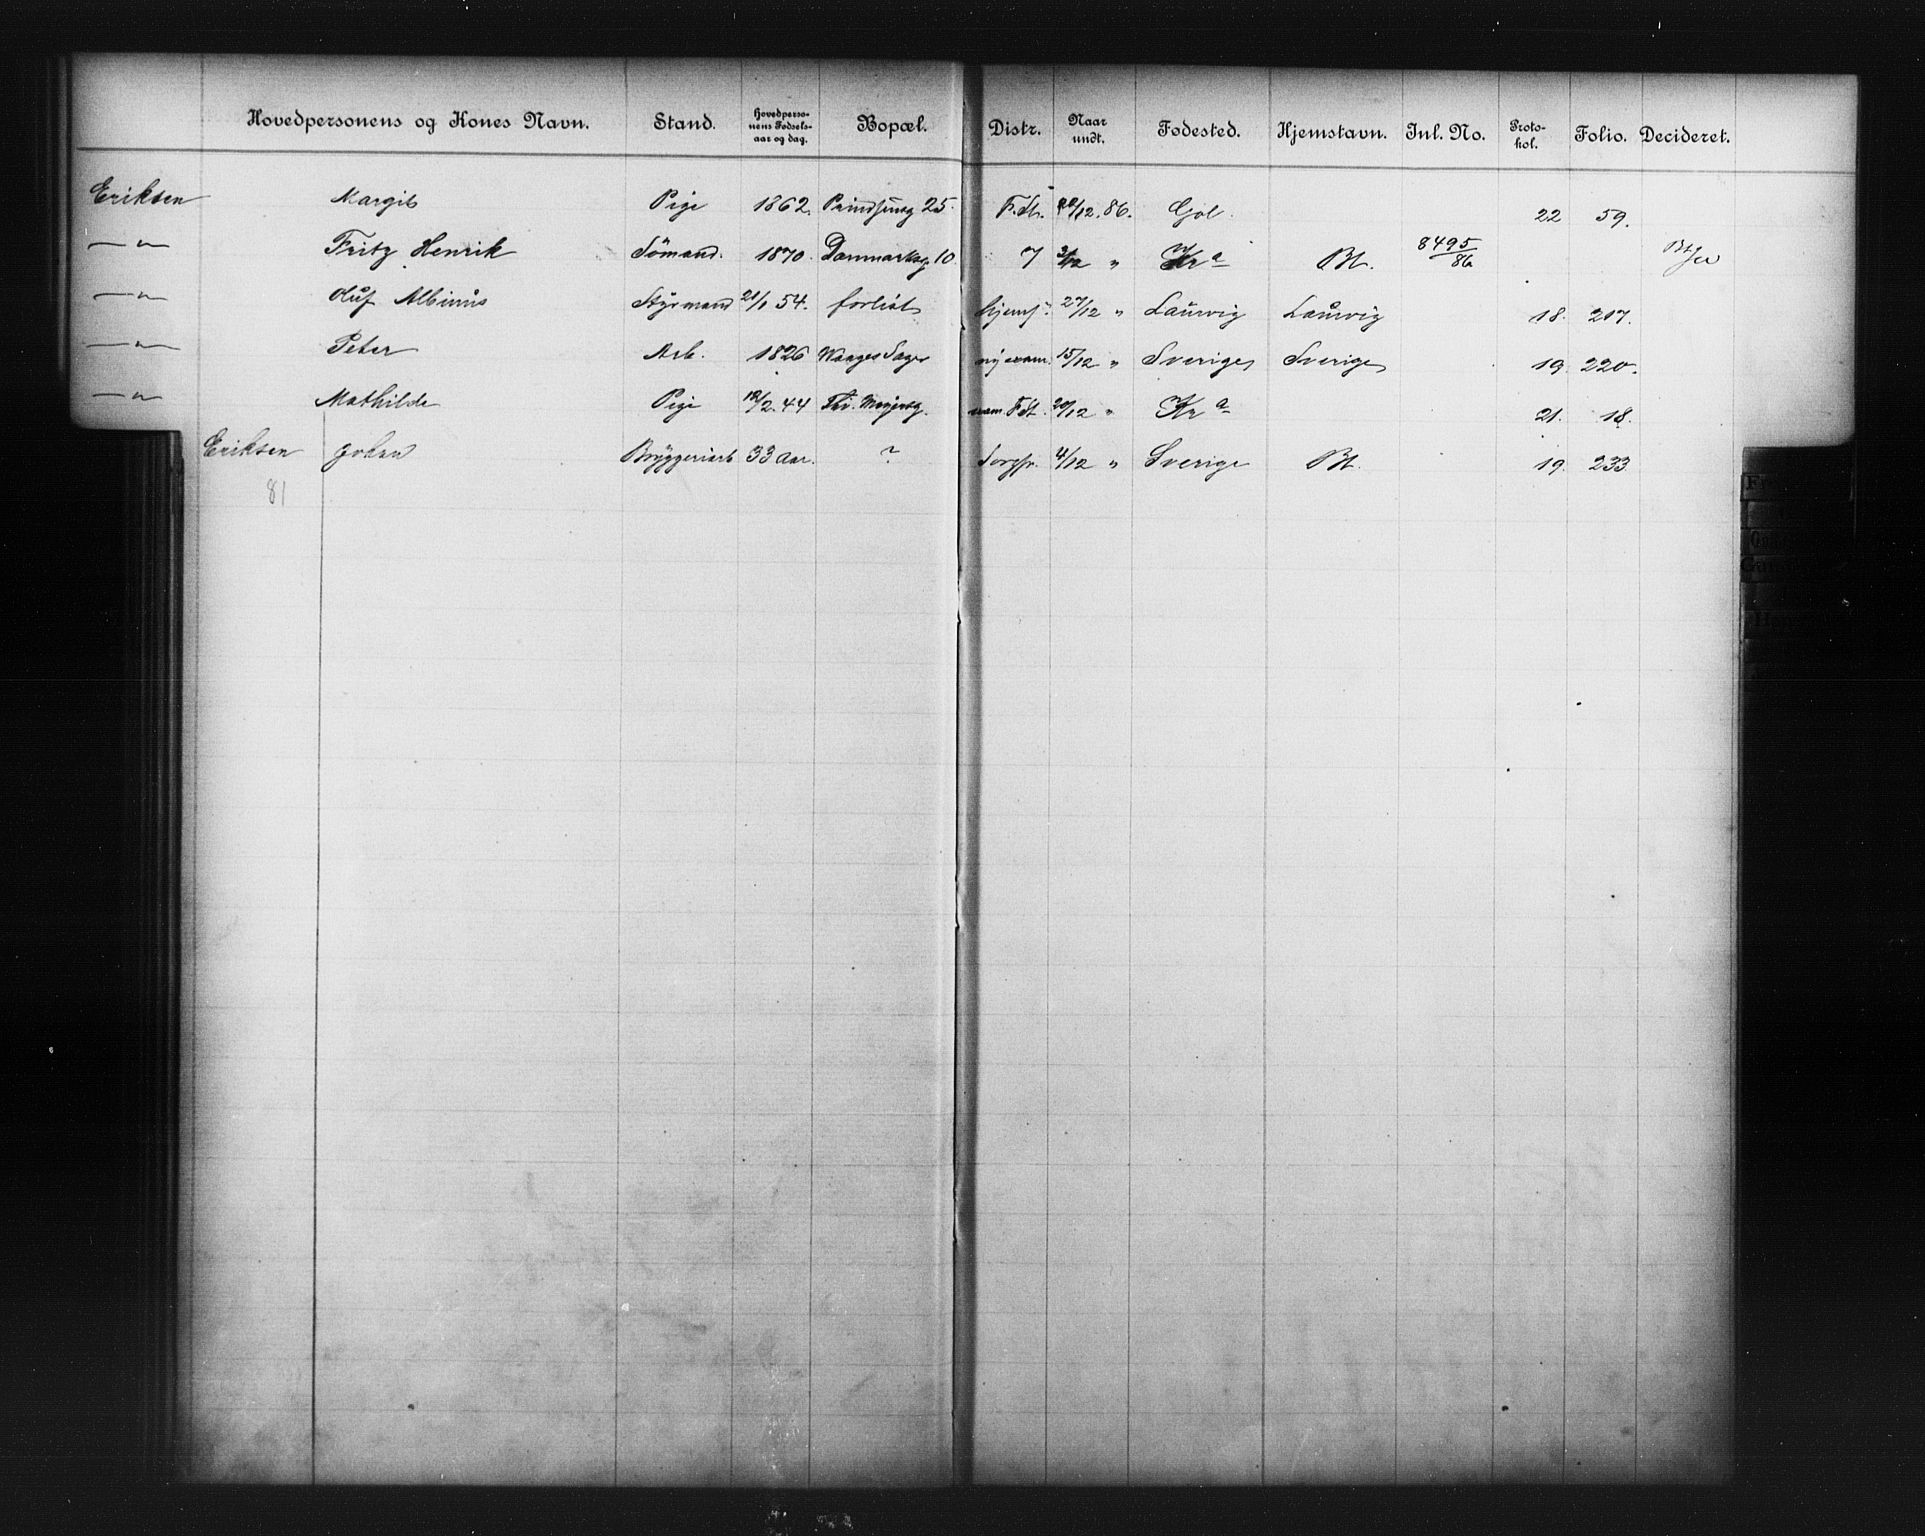 Hovedpersonens og Kones Navn. Stand. Hovedpersonens Fødselsaar og dag. Bopæl. Distr. Naar undt. Fødested. Hjemstavn. Inl. No. Protokol. Folio. Decideret.
Eriksen Margit Pige 1862. Prindsensg 25. F.dt. 22/12. 86. Gol. 22 59.
—"— Fritz Henrik Sömand. 1870. Danmarksg 10. 7 3/12 " Kra Bt. 8495/86
—"— Oluf Albinus Styrmand 21/1 54. forlist hjemf. 27/12 " Laurvig Laurvig 18. 217.
—"— Peter Arb. 1826 Waages Sager 15/12 " Sverige Sverige 19. 220.
—"— Mathilde Pige 18/2. 44 Th. Meyersg. Fdt. 20/12 " Kra 21. 18.
Eriksen Johan Bryggeriarb 33 Aar. ? 4/12 " Sverige Bt. 19. 233
81